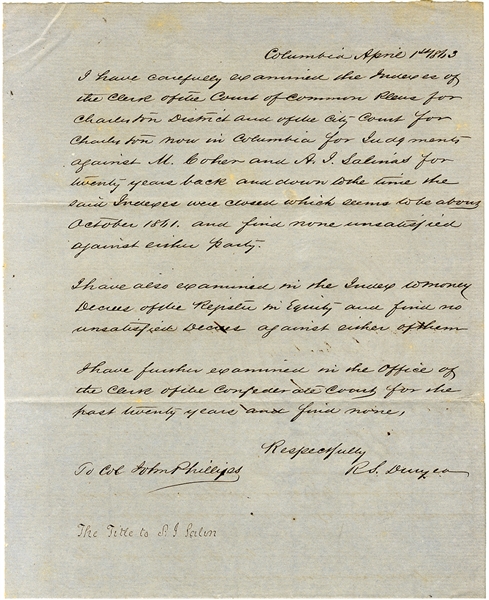 Columbia April 1st 1863
I have carefully examined the Indexes of
the Clerk of the Court of Common Pleas for
Charleston District and of the City Court for
Charleston now in Columbia for Judgments
against M. Cohen and A. J. Salinas for
twenty years back and down to the time the
said Indexes were closed which seems to be about
October 1861. and find none unsatisfied
against either party.
I have also examined in the Index to money
Decrees of the Register in Equity and find no
unsatisfied Decrees against either of them
I have further examined in the Office of
the Clerk of the Confederate Court for the
past twenty years and find none,
Respectfully
To Col John Phillips
R. S. Duryea
The Title to S. J